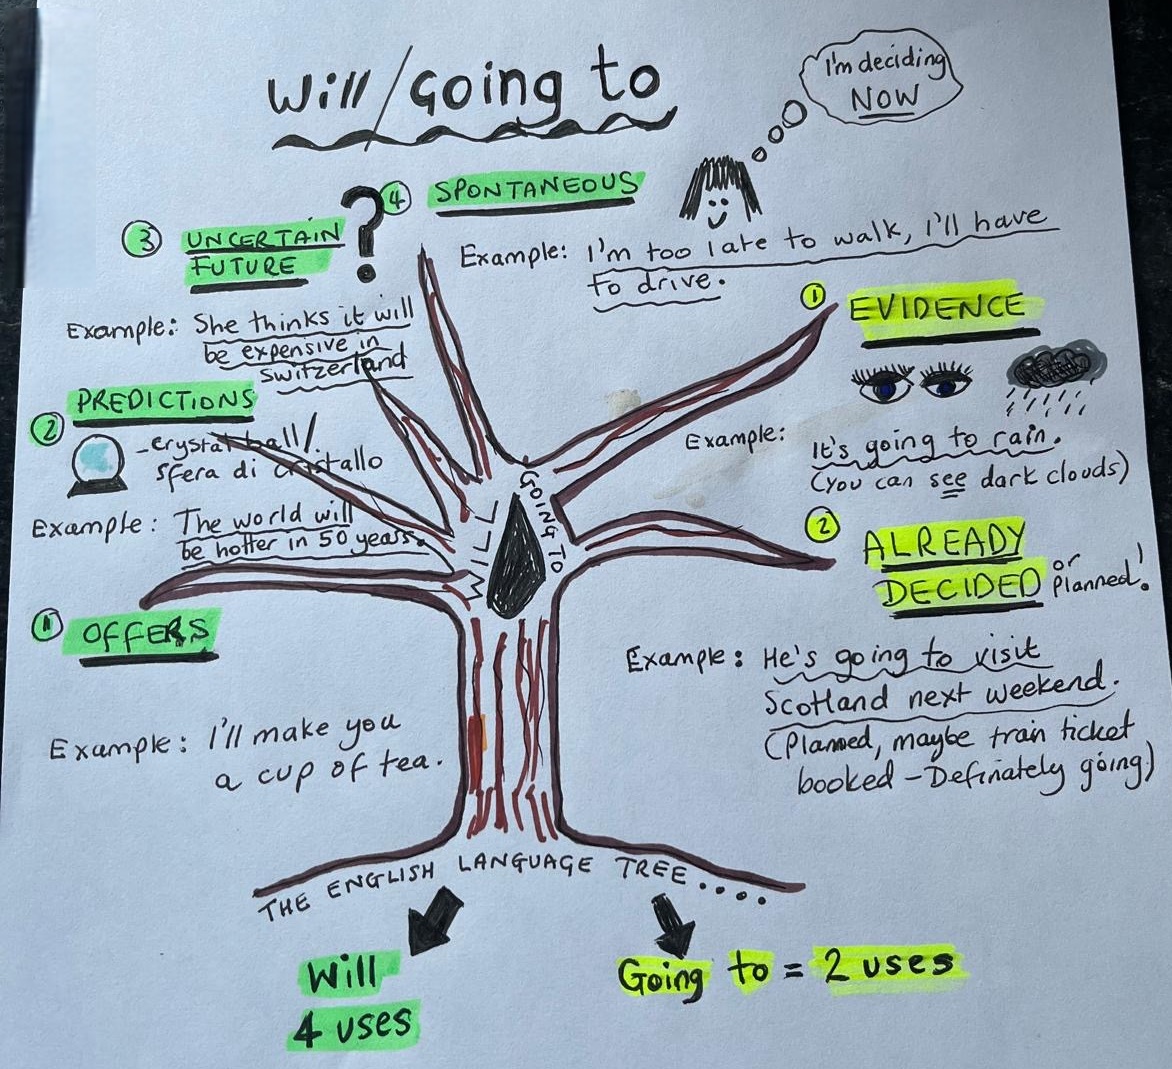 Will/Going to
I'm deciding
NOW
④ SPONTANEOUS
Example: I'm too late to walk, I'll have
to drive.
③ UNCERTAIN
FUTURE
?
Example: She thinks it will
be expensive in
switzerland
② PREDICTIONS
- crystal ball/
sfera di cristallo
Example: The world will
be hotter in 50 years.
① OFFERS
Example: I'll make you
a cup of tea.
WILL
GOING TO
① EVIDENCE
Example: It's going to rain.
(you can see dark clouds)
② ALREADY
DECIDED or planned!
Example: He's going to visit
Scotland next weekend.
(Planned, maybe train ticket
booked - Definately going)
THE ENGLISH LANGUAGE TREE.....
Will
4 uses
Going to = 2 uses